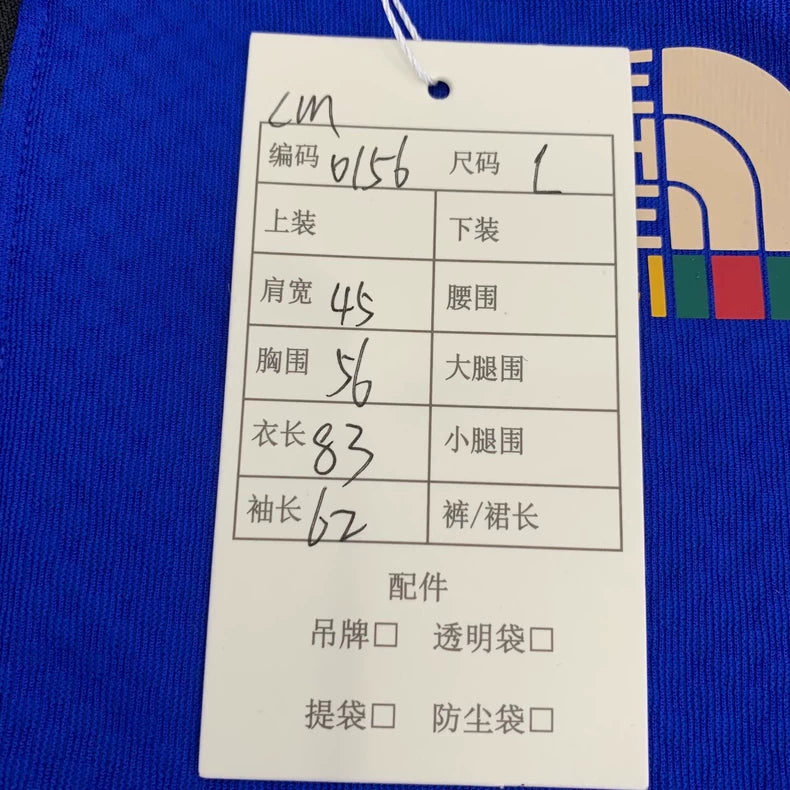 cm
编码 0156 尺码 L
上装 下装
肩宽 45 腰围
胸围 56 大腿围
衣长 83 小腿围
袖长 62 裤/裙长
配件
吊牌□ 透明袋□
提袋□ 防尘袋□